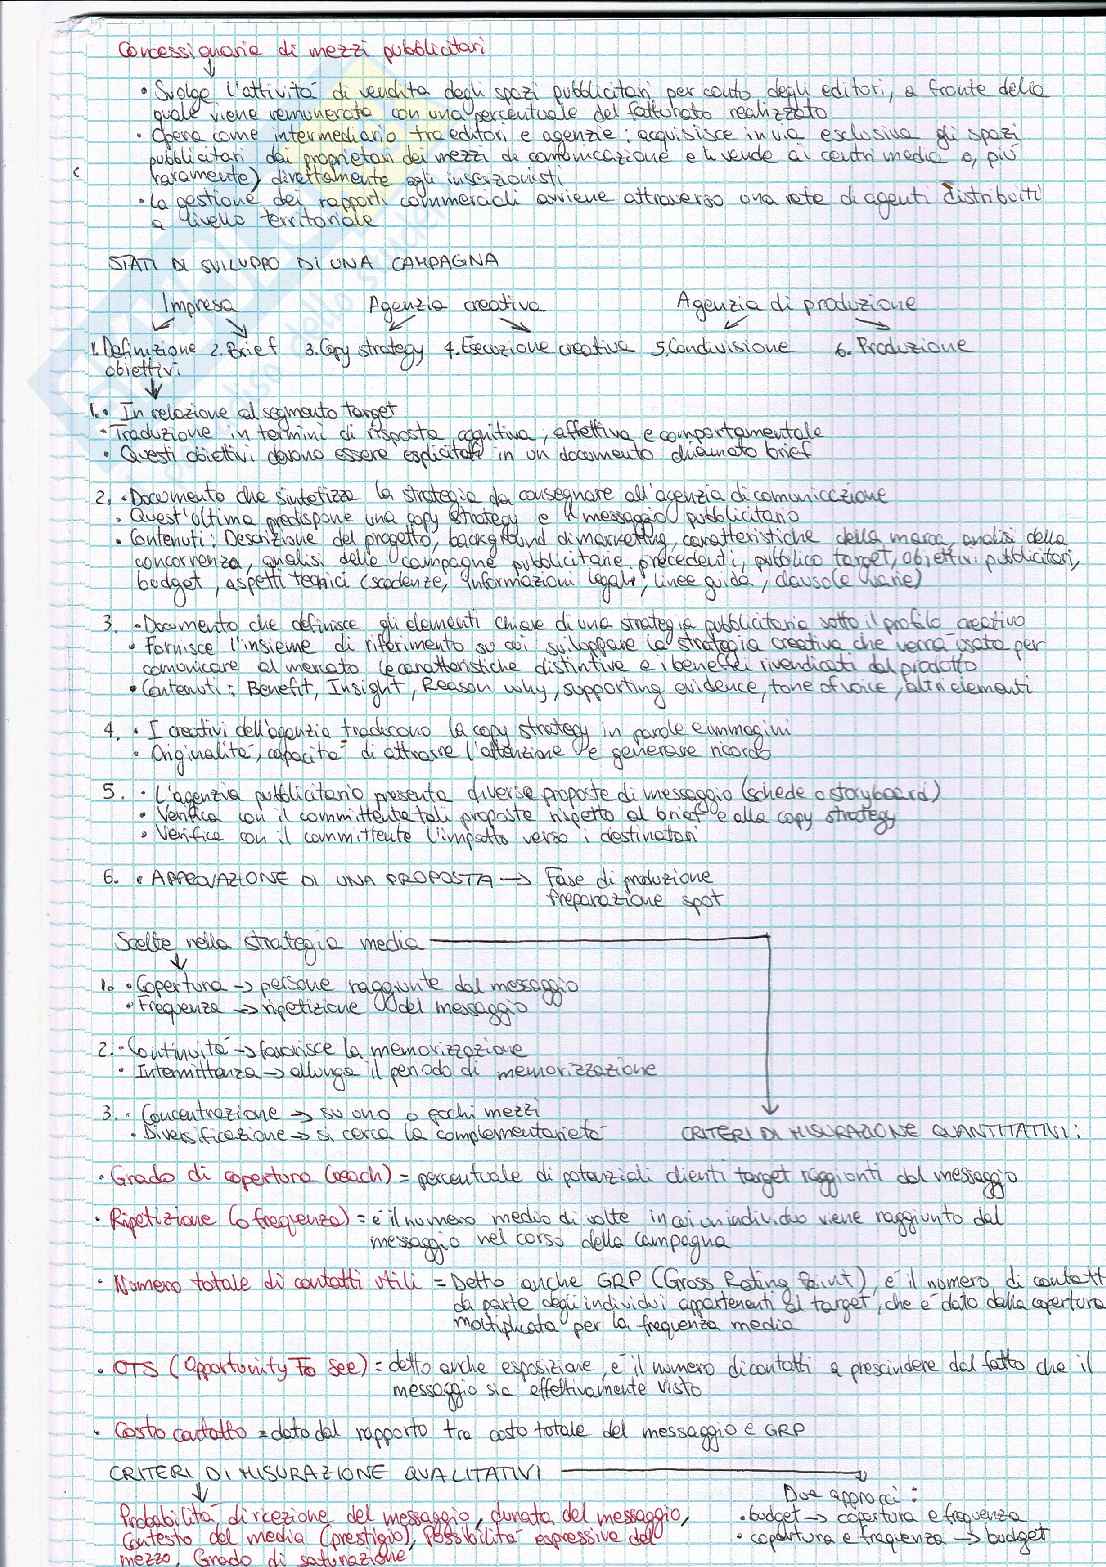 Concessionaria di mezzi pubblicitari
• Svolge l'attività di vendita degli spazi pubblicitari per conto degli editori, a fronte della
quale viene remunerata con una percentuale del fatturato realizzato
• Opera come intermediario tra editori e agenzie: acquisisce in via esclusiva gli spazi
pubblicitari dai proprietari dei mezzi di comunicazione e li vende ai centri media o, più
raramente) direttamente agli inserzionisti
• La gestione dei rapporti commerciali avviene attraverso una rete di agenti distribuiti
a livello territoriale
STATI DI SVILUPPO DI UNA CAMPAGNA
Impresa Agenzia creativa Agenzia di produzione
1. Definizione 2. Brief 3. Copy strategy 4. Esecuzione creativa 5. Condivisione 6. Produzione
obiettivi
1. • In relazione al segmento target
• Traduzione in termini di risposta cognitiva, affettiva e comportamentale
• Questi obiettivi devono essere esplicitati in un documento chiamato brief
2. • Documento che sintetizza la strategia da consegnare all'agenzia di comunicazione
• Quest'ultima predispone una copy strategy e il messaggio pubblicitario
• Contenuti: Descrizione del progetto, background di marketing, caratteristiche della marca, analisi della
concorrenza, analisi delle campagne pubblicitarie precedenti, pubblico target, obiettivi pubblicitari,
budget, aspetti tecnici (scadenze, informazioni legali, linee guida, clausole varie)
3. • Documento che definisce gli elementi chiave di una strategia pubblicitaria sotto il profilo creativo
• Fornisce l'insieme di riferimento su cui sviluppare la strategia creativa che verrà usata per
comunicare al mercato le caratteristiche distintive e i benefici rivendicati dal prodotto
• Contenuti: Benefit, Insight, Reason why, supporting evidence, tone of voice, altri elementi
4. • I creativi dell'agenzia traducono la copy strategy in parole e immagini
• Originalità, capacità di attrarre l'attenzione e generare ricordo
5. • L'agenzia pubblicitaria presenta diverse proposte di messaggio (schede o storyboard)
• Verifica con il committente tali proposte rispetto al brief e alla copy strategy
• Verifica con il committente l'impatto verso i destinatari
6. • APPROVAZIONE DI UNA PROPOSTA → Fase di produzione
Preparazione spot
Scelte nella strategia media
1. • Copertura → persone raggiunte dal messaggio
• Frequenza → ripetizione del messaggio
2. • Continuità → favorisce la memorizzazione
• Intermittenza → allunga il periodo di memorizzazione
3. • Concentrazione → su uno o pochi mezzi
• Diversificazione → si cerca la complementarietà CRITERI DI MISURAZIONE QUANTITATIVI:
• Grado di copertura (reach) = percentuale di potenziali clienti target raggiunti dal messaggio
• Ripetizione (o frequenza) = è il numero medio di volte in cui un individuo viene raggiunto dal
messaggio nel corso della campagna
• Numero totale di contatti utili = Detto anche GRP (Gross Rating Point), è il numero di contatti
da parte degli individui appartenenti al target, che è dato dalla copertura
moltiplicata per la frequenza media
• OTS (Opportunity To See) = detto anche esposizione, è il numero di contatti a prescindere dal fatto che il
messaggio sia effettivamente visto
• Costo contatto = dato dal rapporto tra costo totale del messaggio e GRP
CRITERI DI MISURAZIONE QUALITATIVI
Due approcci:
Probabilità di ricezione del messaggio, durata del messaggio, • budget → copertura e frequenza
Contesto del media (prestigio), Possibilità espressive del • copertura e frequenza → budget
mezzo, Grado di saturazione